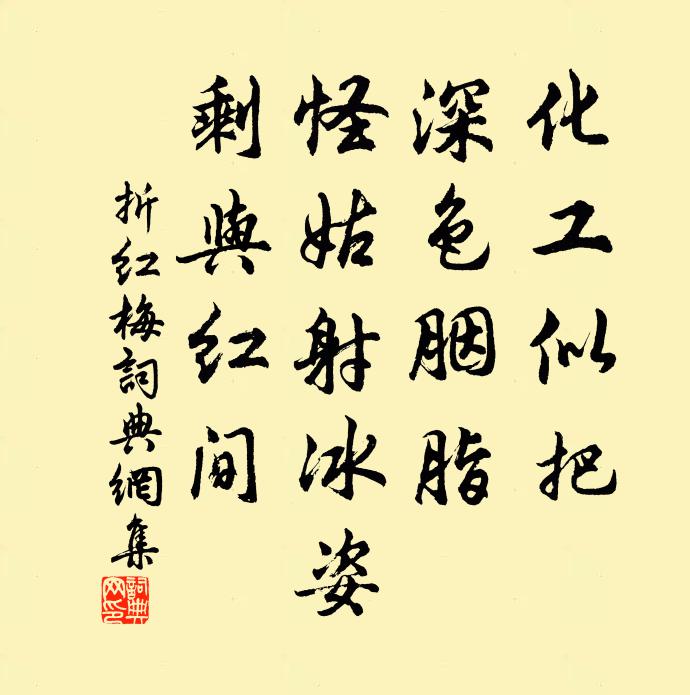 化工似把
深色胭脂
怪姑射冰姿
剩與红間
折红梅詞典網集
詞典網印